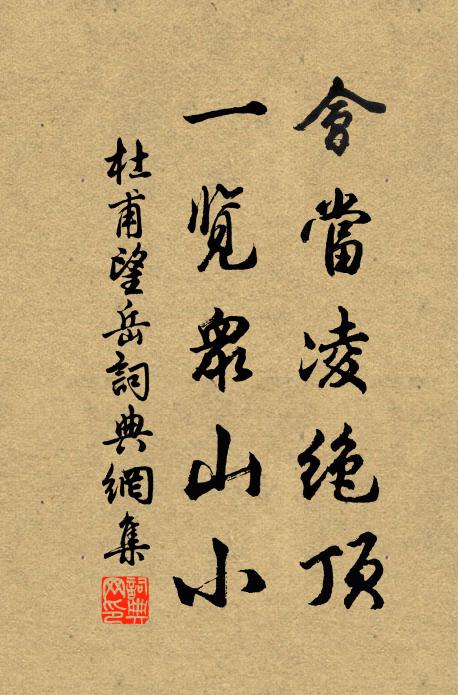 會當凌绝顶
一览眾山小
杜甫望岳詞典網集
詞典
网印